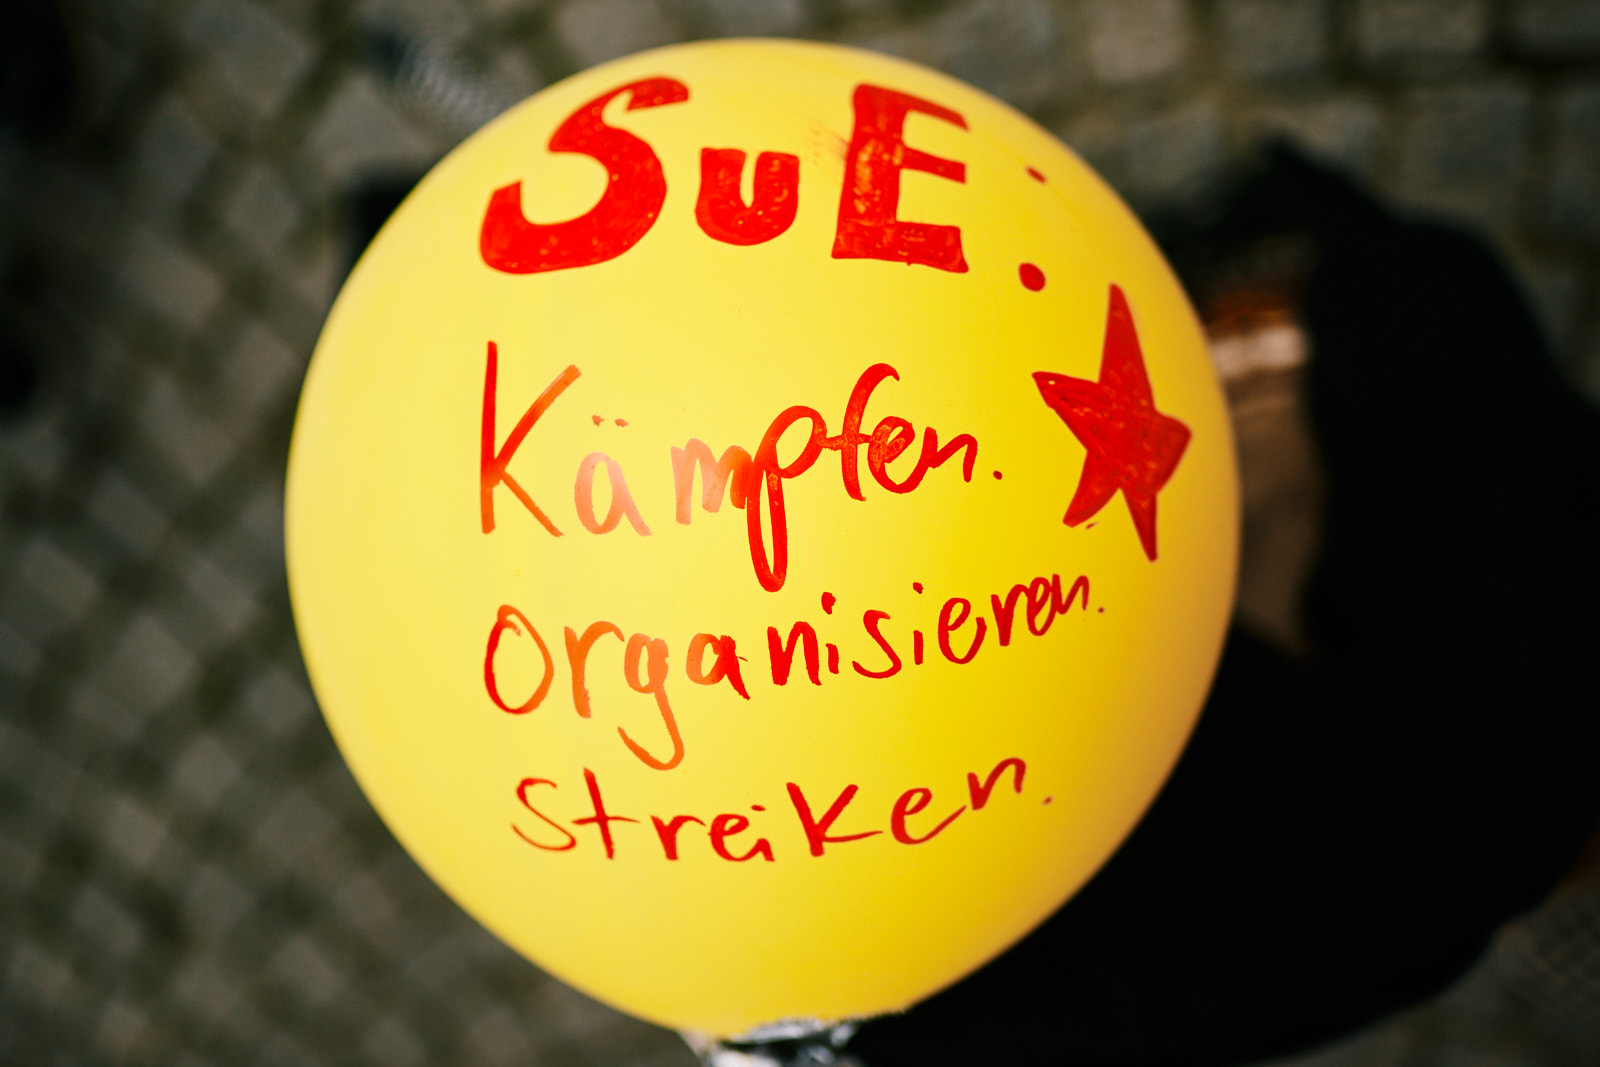 SuE:
Kämpfen.
Organisieren.
Streiken.